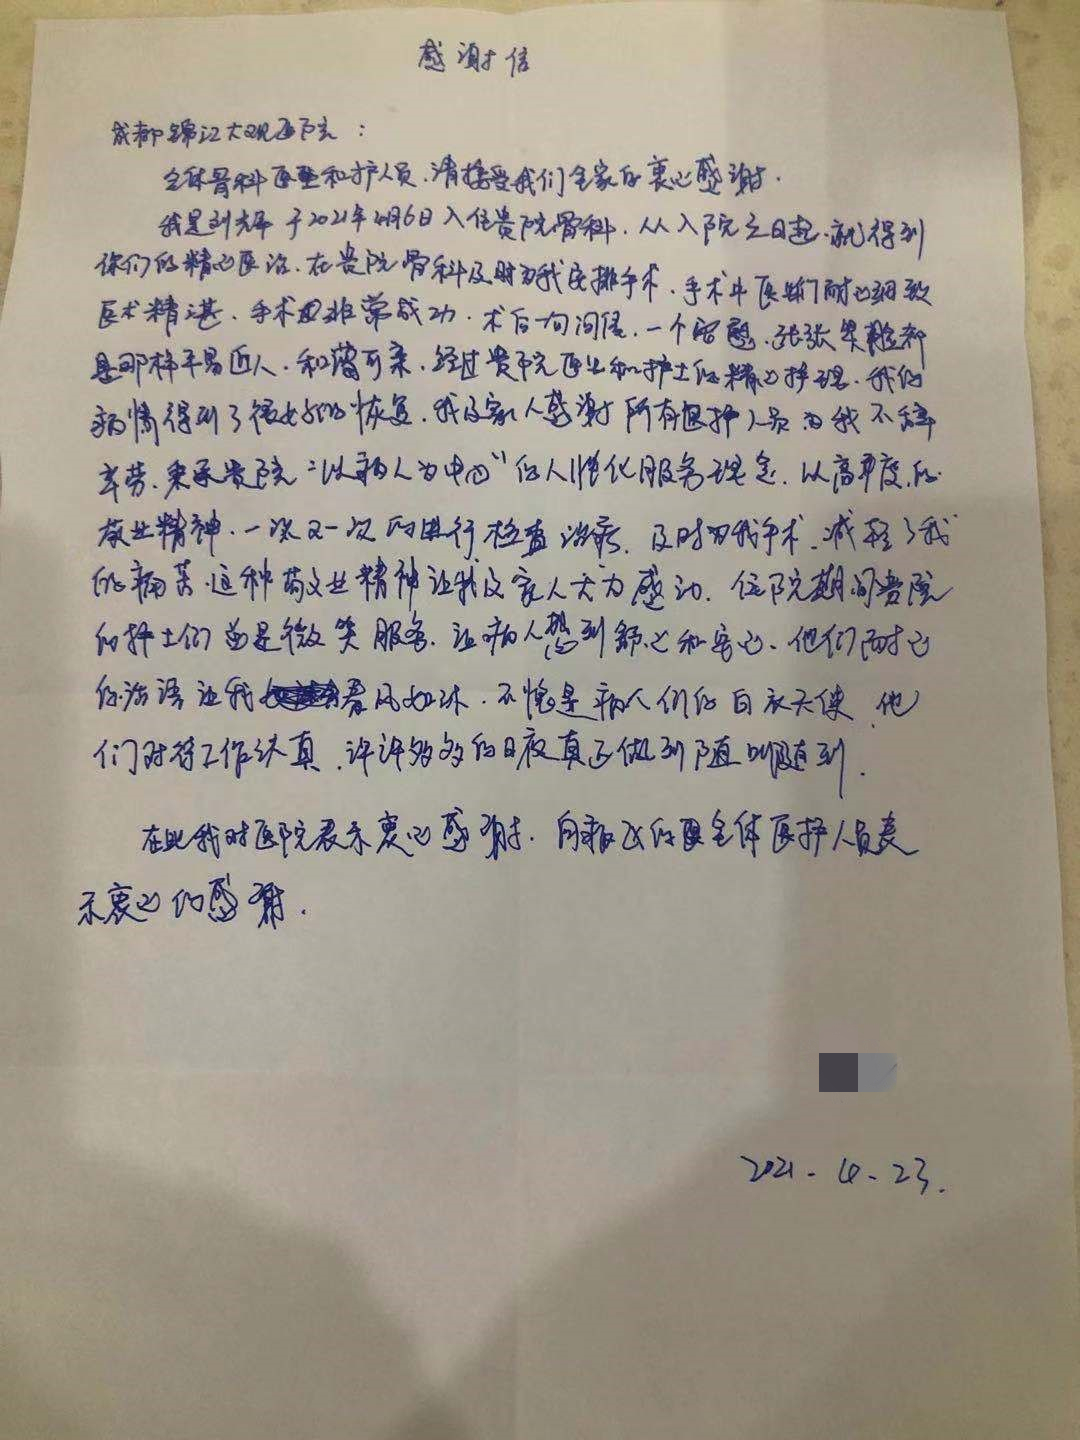 感谢信
成都锦江大观医院：
全体骨科医生和护人员、请接受我们全家的衷心感谢.
我是刘 于2021年4月6日入住贵院骨科、从入院之日起、就得到
你们的精心医治、在贵院骨科及时为我安排手术、手术中医生们耐心细致
医术精湛、手术非常成功、术后一句问侯、一个安慰、张张笑脸都
是那样平易近人、和蔼可亲、经过贵院医生和护士的精心护理、我的
病情得到了很好的恢复、我及家人感谢所有医护人员为我不辞
辛劳、秉承贵院“以病人为中心”的人性化服务理念、以高度的
敬业精神、一次又一次的进行检查治疗、及时为我手术、减轻了我
的痛苦、这种敬业精神让我及家人大为感动、住院期间贵院
的护士们总是微笑服务、让病人感到舒心和安心、他们耐心
的话语让我春风如沐、不愧是病人们的白衣天使 他
们对待工作认真、许许多多的日夜真正做到随叫随到.
在此我对医院表示衷心感谢、向 的医全体医护人员表
示衷心的感谢.
2021-4-23.